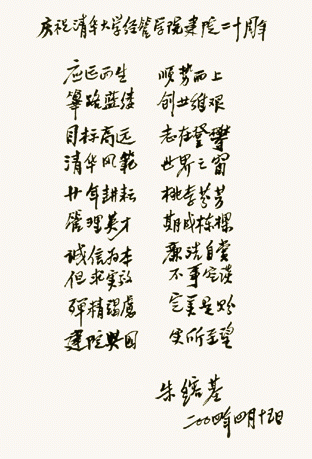 庆祝清华大学经管学院建院二十周年
应运而生 顺势而上
筚路蓝缕 创业维艰
目标高远 志在登攀
清华风范 世界之窗
廿年耕耘 桃李芬芳
管理英才 期成栋樑
诚信为本 廉洁自赏
但求实效 不事空谈
殚精竭虑 完美是盼
建院兴国 实所至望
朱镕基
二〇〇四年四月十五日